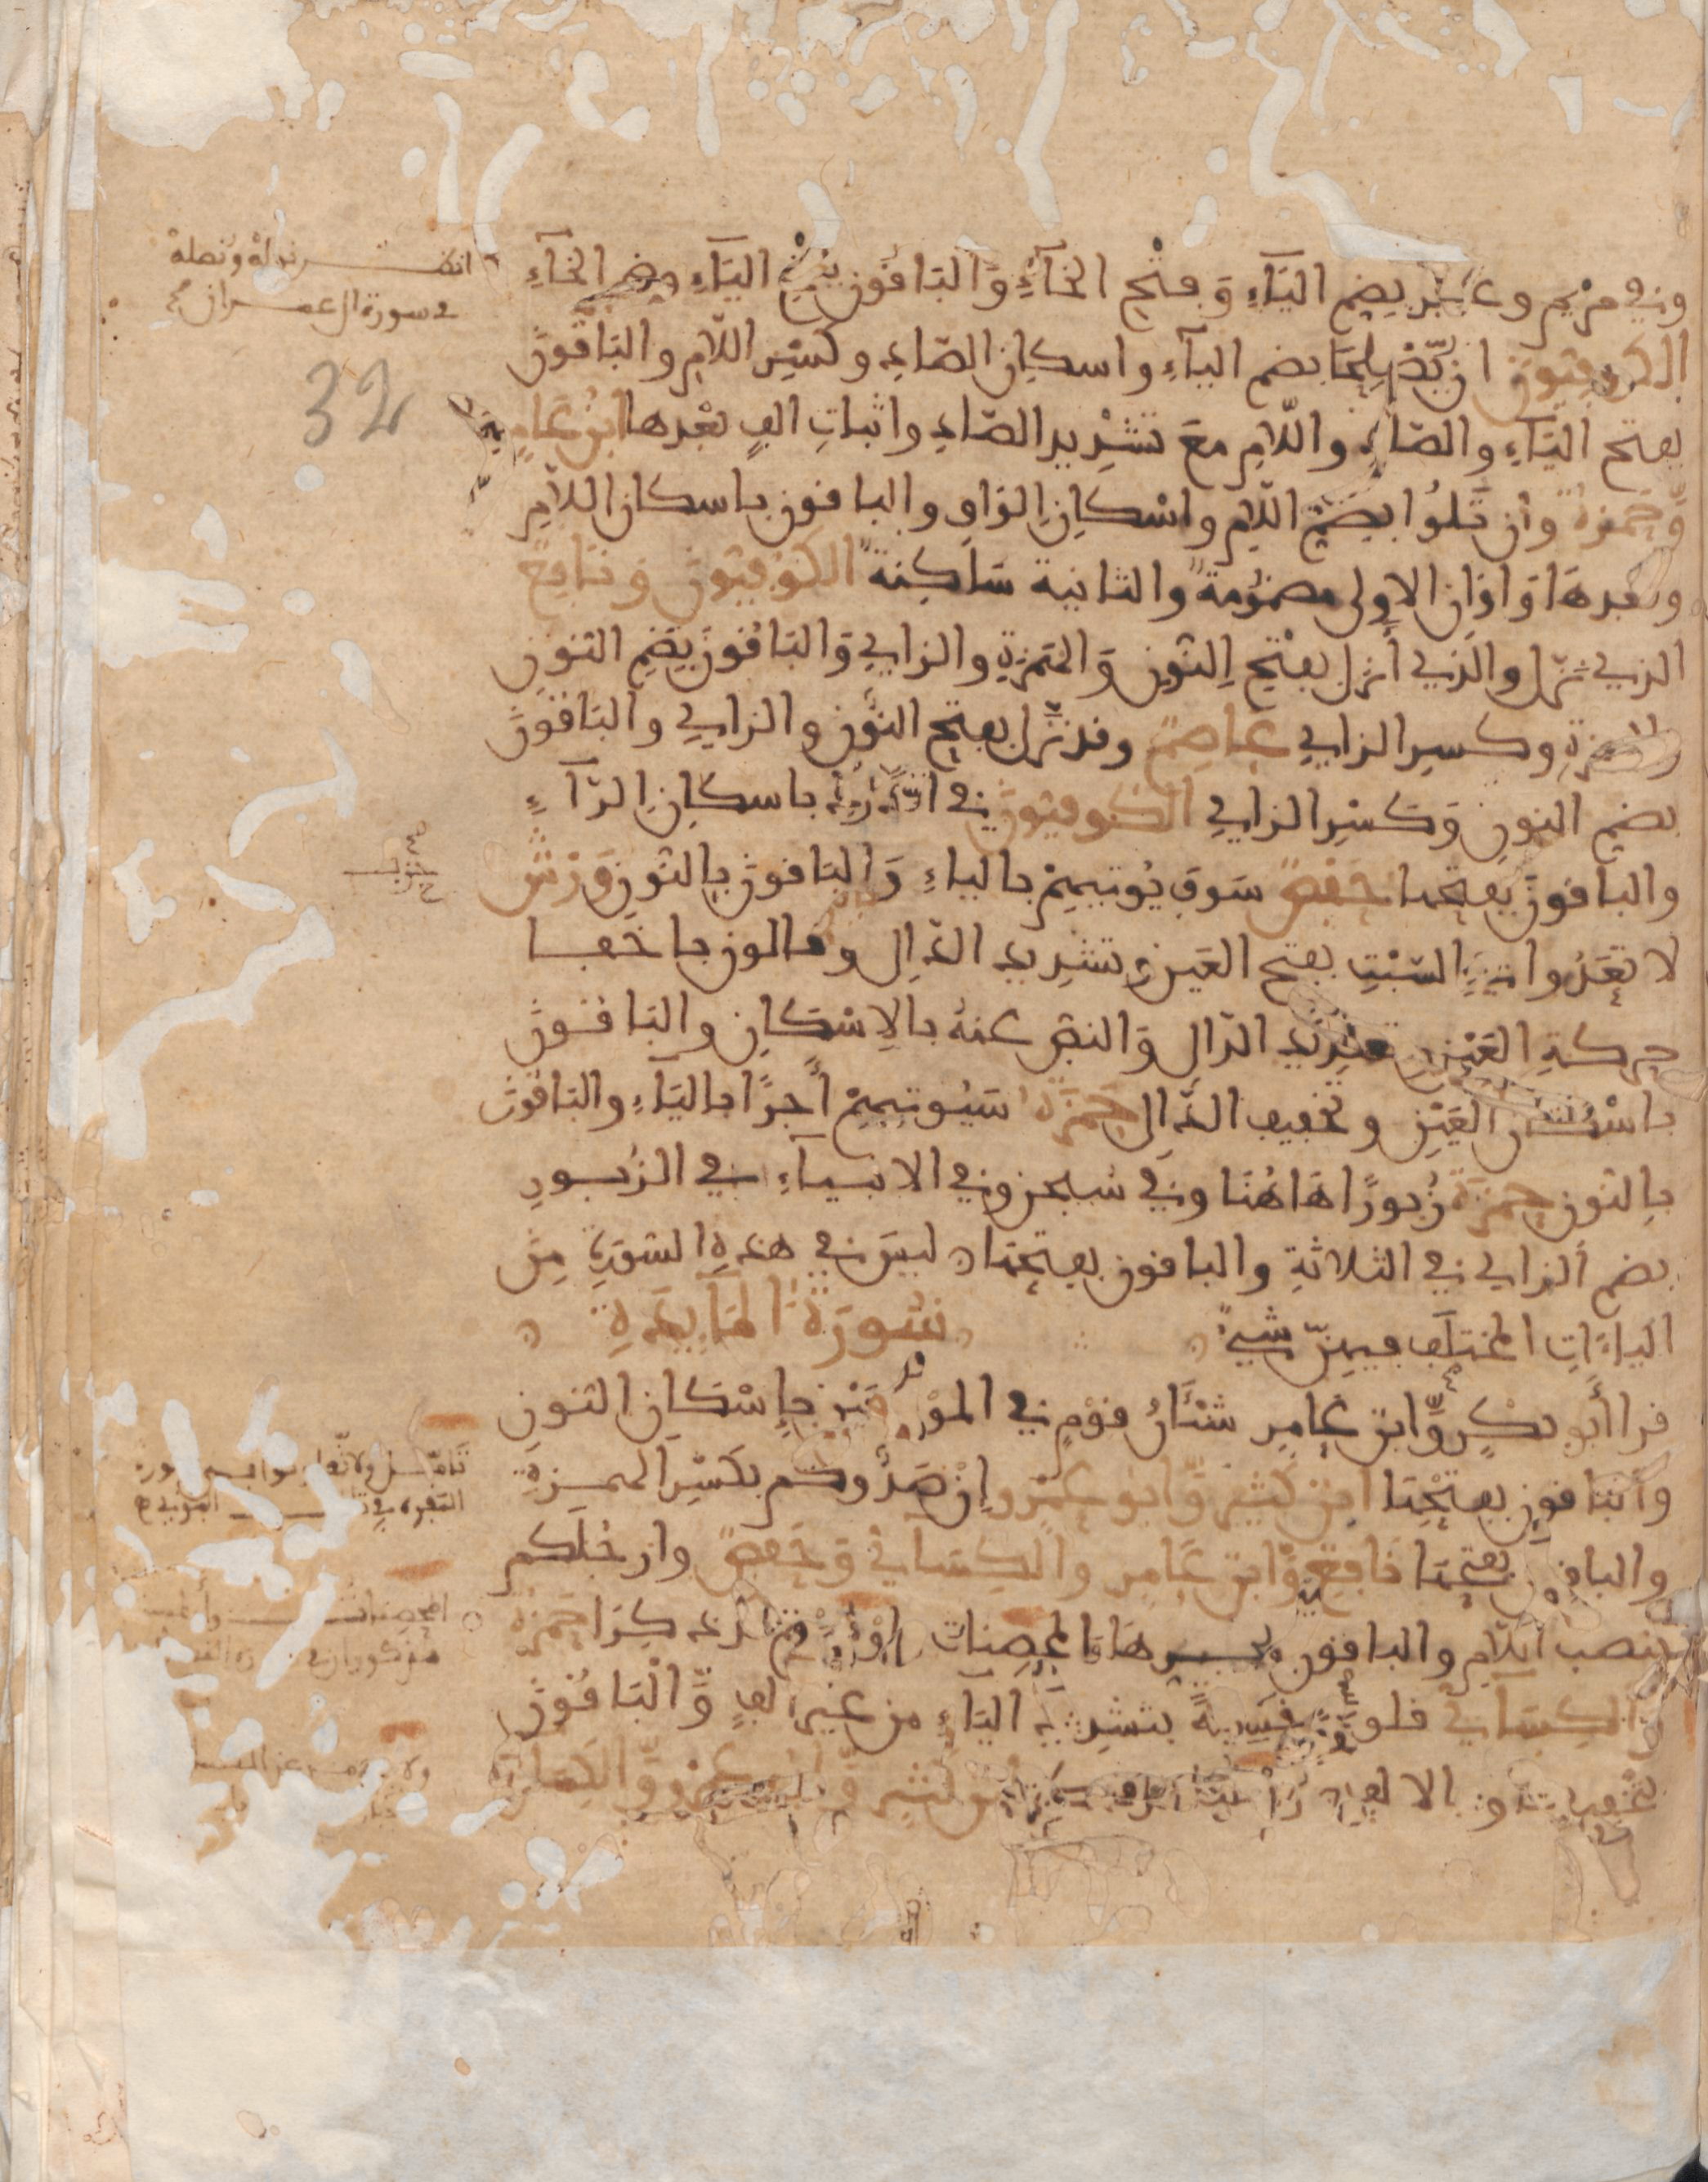 وفي مريم وغافر بضم الياء وفتح الخاء والباقون بفتح الياء وضم الخاء
الكوفيون ان يُصْلِحَا بضم الياء واسكان الصاد وكسر اللام والباقون
بفتح الياء والصاد واللام مع تشديد الصاد واثبات الف بعدها ابن عامر
وحمزة وان تلُوا بضم اللام واسكان الواو والباقون باسكان اللام
وبعدها واوان الاولى مضمومة والثانية ساكنة الكوفيون ونافع
الذي نزّل والذي أنزل بفتح النون والهمزة والزاي والباقون بضم النون
والهمزة وكسر الزاي عاصم وقد نزّل بفتح النون والزاي والباقون
بضم النون وكسر الزاي الكوفيون في الدرك باسكان الراء
والباقون بفتحها حفص سوف يوتيهم بالياء والباقون بالنون ورش
لا تعدّوا في السبت بفتح العين وتشديد الدال وقالون باخفا
حركة العين وتشديد الدال والنص عنه بالاسكان والباقون
باسكان العين وتخفيف الدال حمزة سيوتيهم أجرًا بالياء والباقون
بالنون حمزة زُبورًا هاهنا وفي سبحن وفي الانبياء في الزبور
بضم الزاي في الثلاثة والباقون بفتحها ليس في هذه السورة من
الياءات المختلف فيهنّ شيء
سورة المايدة
قرا أبو بكر وابن عامر شنْئان قوم في الموضعين بإسكان النون
والباقون بفتحها ابن كثير وابو عمرو إن صدوكم بكسر الهمزة
والباقون بفتحها نافع وابن عامر والكسائي وحفص وارجلكم
بنصب اللام والباقون بجرها المحصنات قد ذكرا حمزة
والكسائي قلوبهم قسيّة بتشديد الياء من غير الف والباقون
بتخفيفها وبالالف ابن كثير وابو عمرو والكسائي
انظر نوله ونصله
في سورة ال عمران
32
حزب